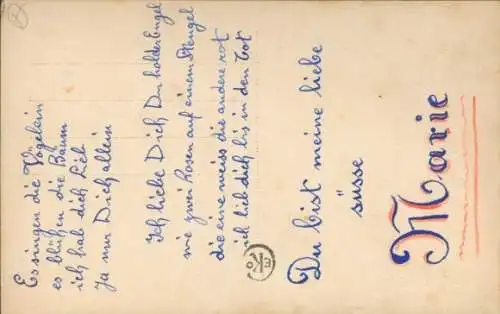 Es singen die Vögelein
es blüßen die Bäum
ich hab dich Lieb
Ja nur Dich allein
Ich liebe Dich Du holder Engel
wie zwei Rosen auf einem Stengel
die eine weiss die andere rot
ich lieb dich bis in den Tot
Du bist meine liebe
süsse
Marie